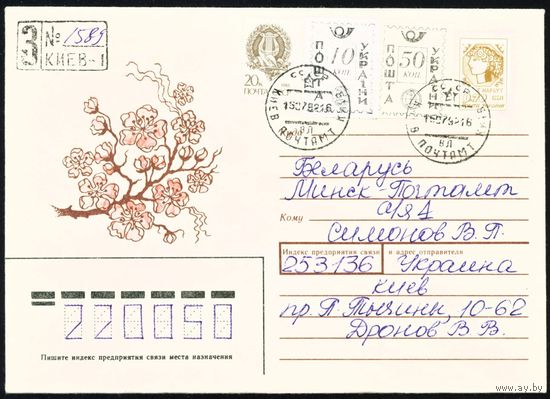 З № 1589
КИЕВ-1
20к
ПОЧТА
ПОШТА 10 КОП УКРАЇНИ
ПОШТА 50 КОП УКРАЇНИ
СССР
КИЕВ ПОЧТАМТ
СССР
КИЕВ ПОЧТАМТ
Куда
Беларусь
Минск-Почтамт
а/я 4
Кому
Симонов В.П.
Индекс предприятия связи и адрес отправителя
253136 Украина
Киев
пр. П. Тычины, 10-62
Дронов В.В.
220050
Пишите индекс предприятия связи места назначения
www.ay.by